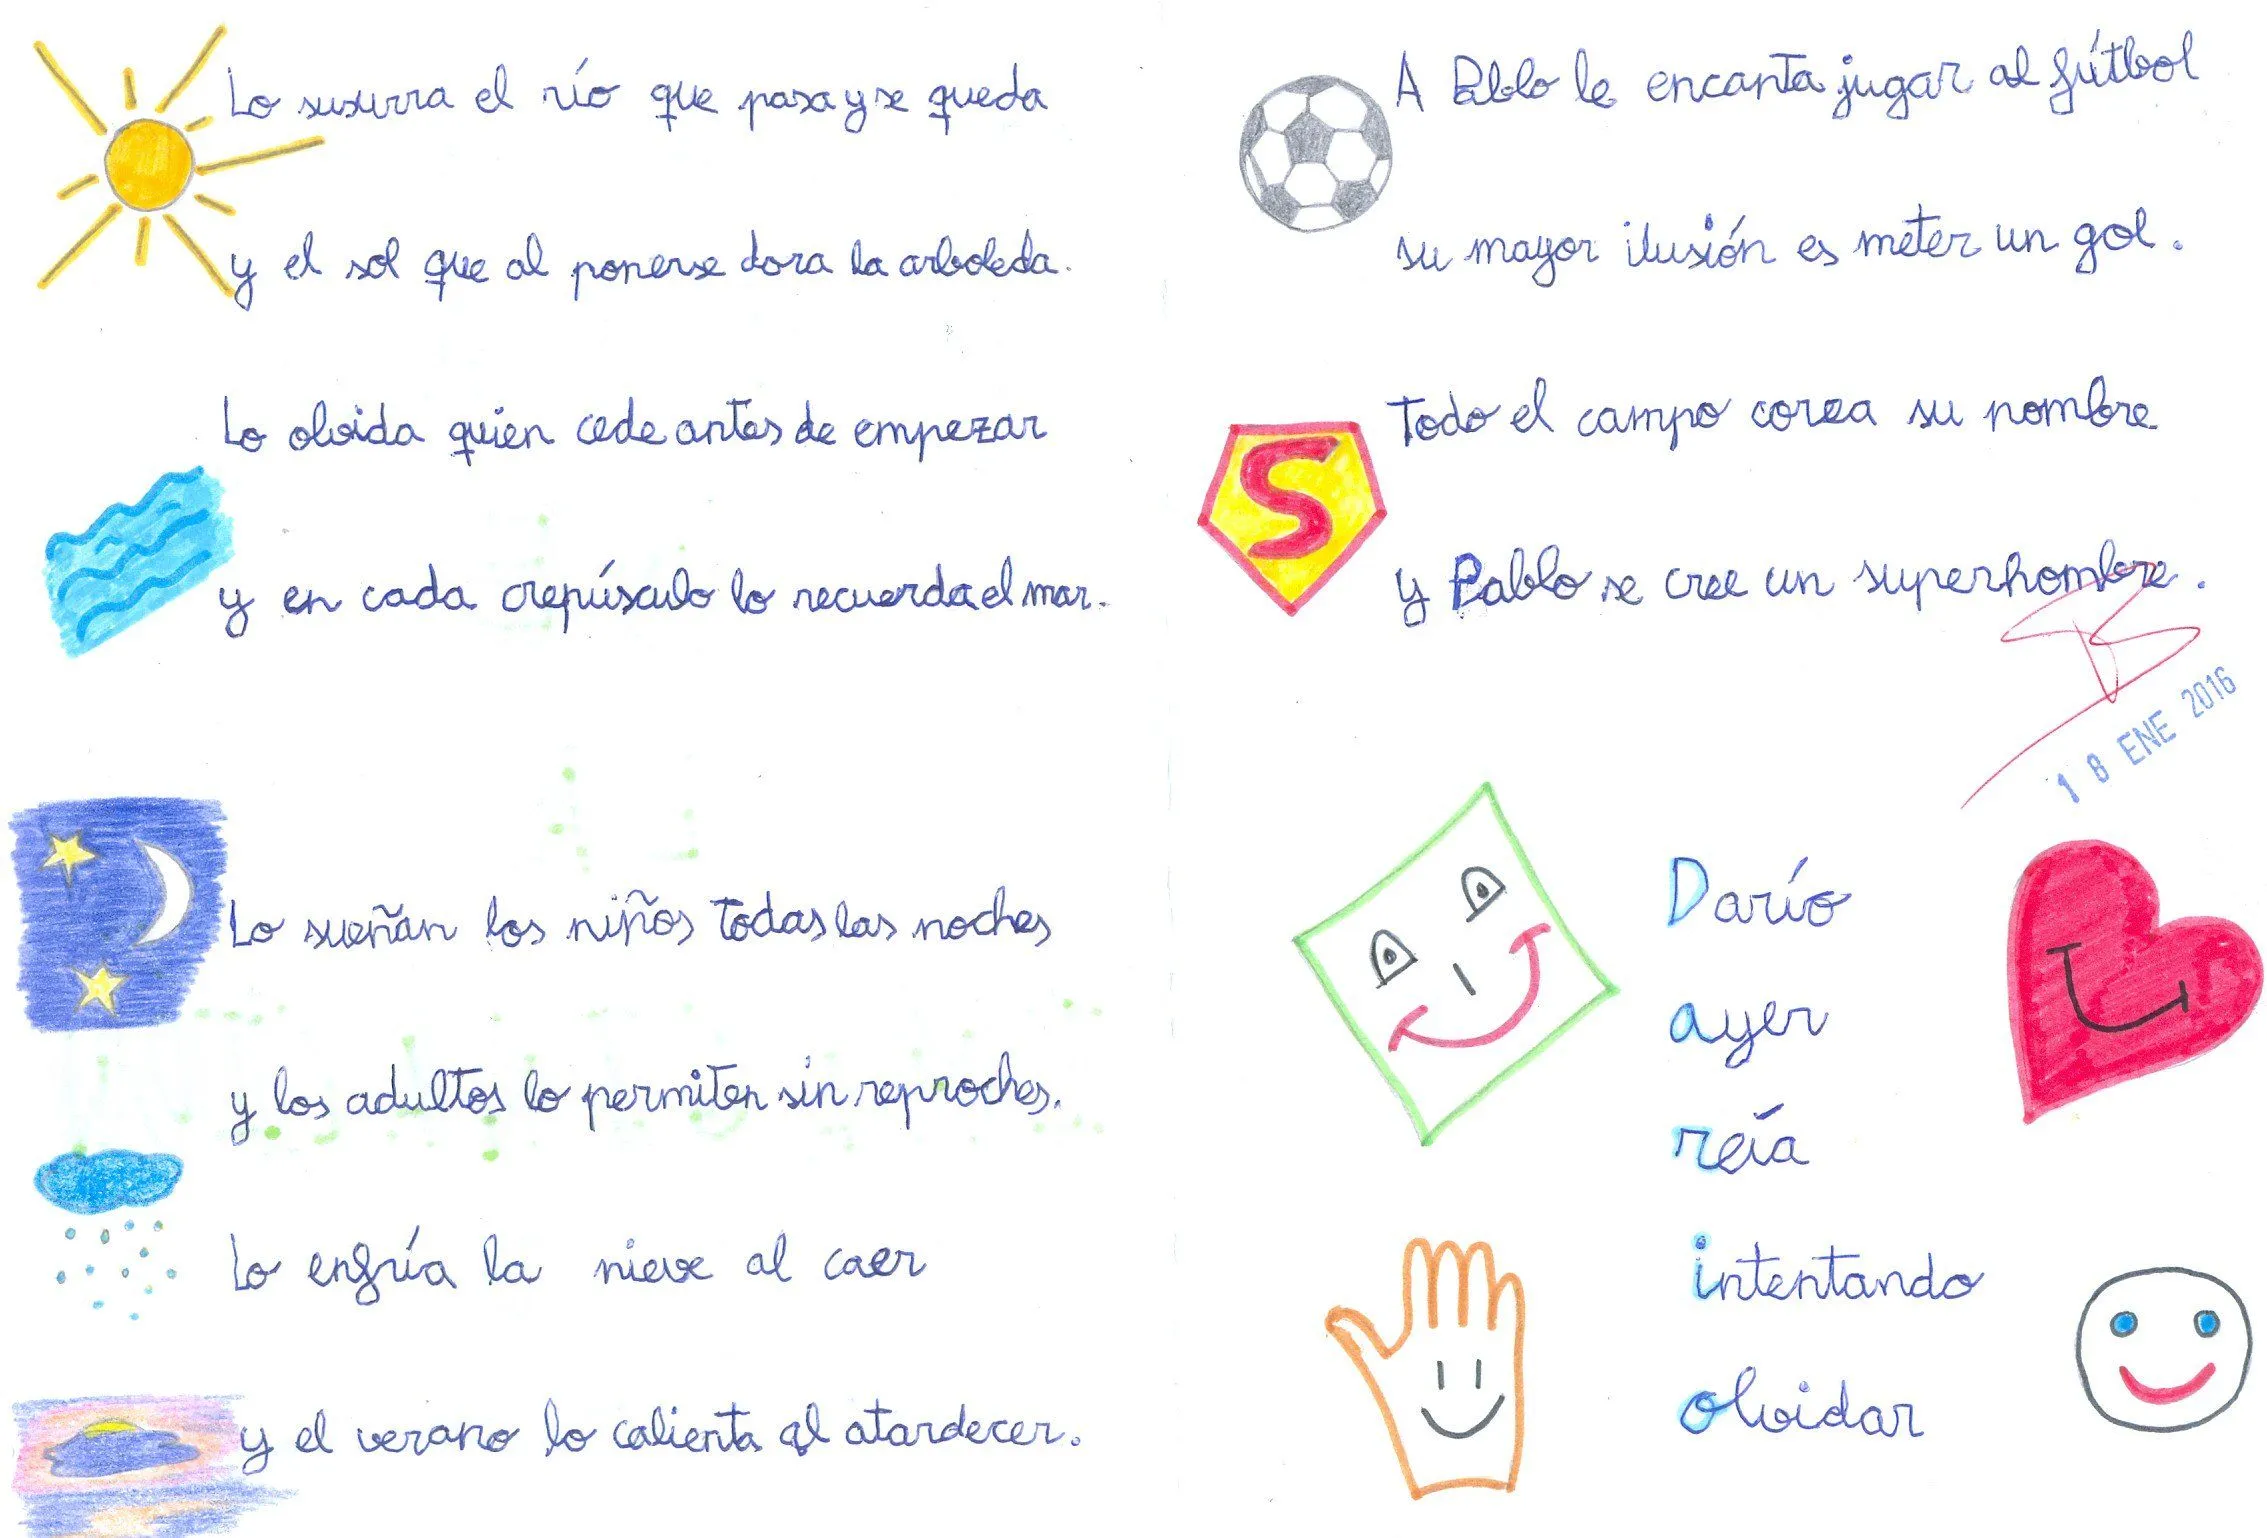 Lo susurra el río que pasa y se queda
y el sol que al ponerse dora la arboleda.
Lo olvida quien cede antes de empezar
y en cada crepúsculo lo recuerda el mar.
Lo sueñan los niños todas las noches
y los adultos lo permiten sin reproches.
Lo enfría la nieve al caer
y el verano lo calienta al atardecer.
A Pablo le encanta jugar al fútbol
su mayor ilusión es meter un gol.
S
Todo el campo corea su nombre
y Pablo se cree un superhombre.
18 ENE 2016
Darío
ayer
reía
intentando
olvidar